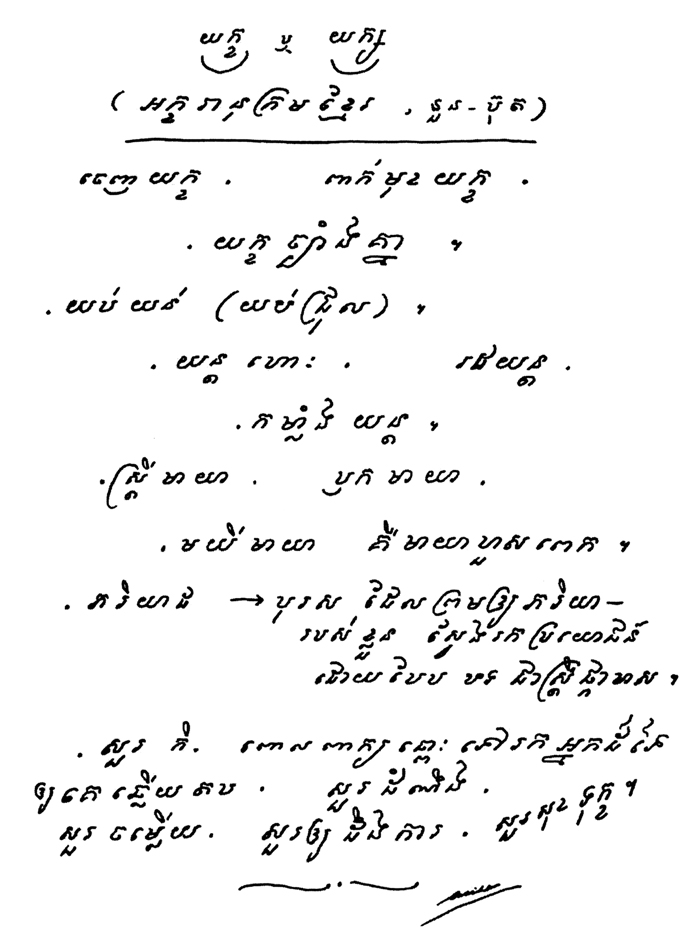 យក្ខ ឬ យក្ស
( អក្ខរានុក្រមខ្មែរ , នួន-ប៊ុត )
ចេញយក្ខ . ពាក់មុខយក្ខ .
. យក្ខច្បាំងគ្នា ។
. យប់យន់ (យប់ជ្រុល) ។
. យន្តហោះ . រថយន្ត .
. កម្លាំងយន្ត ។
. ស្រ្តីមាយា . ឫកមាយា .
. មយើមាយា គឺមាយាហួសពេក ។
. ភរិយាជ → បុរសដែលព្រមឲ្យភរិយា-
របស់ខ្លួន ស្វែងរកប្រយោជន៍
ដោយបែប បទ ជាស្រ្តីផ្កាមាស ។
. សួរ កិ. ពោលពាក្យឆ្ពោះទៅរកអ្នកដ៏ទៃ
ឲ្យគេឆ្លើយតប . សួរដំណឹង .
សួរចម្លើយ . សួរឲ្យដឹងការ . សួរសុខទុក្ខ ។